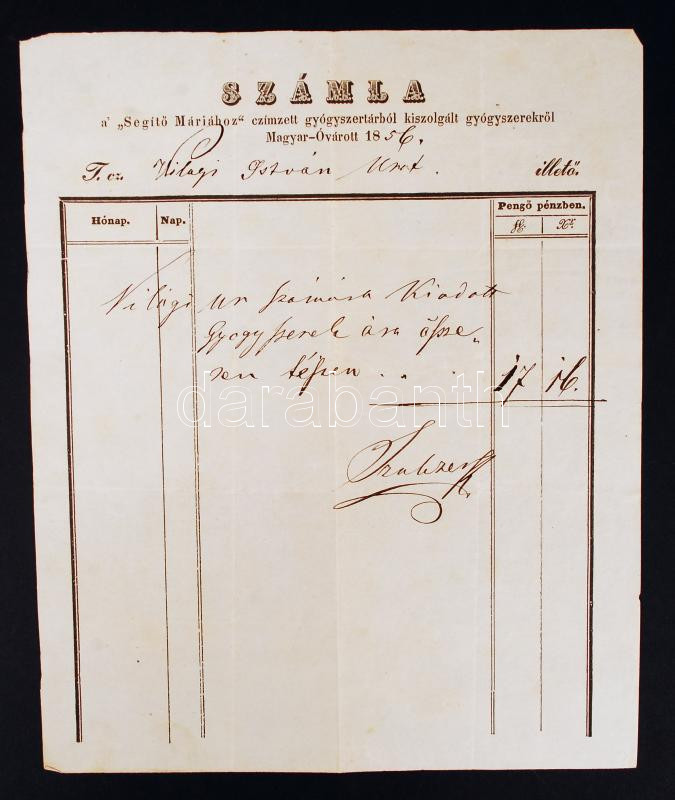 SZÁMLA
a' „Segitő Máriához“ czímzett gyógyszertárból kiszolgált gyógyszerekről
Magyar-Óvárott 1856.
T. cz. Világi István Urat. illető.
Hónap. Nap. Pengő pénzben.
fl. Xr.
Világi Ur számára Kiadott
Gyogyszerek ára össze-
sen tészen . . . 17 16.
darabanth